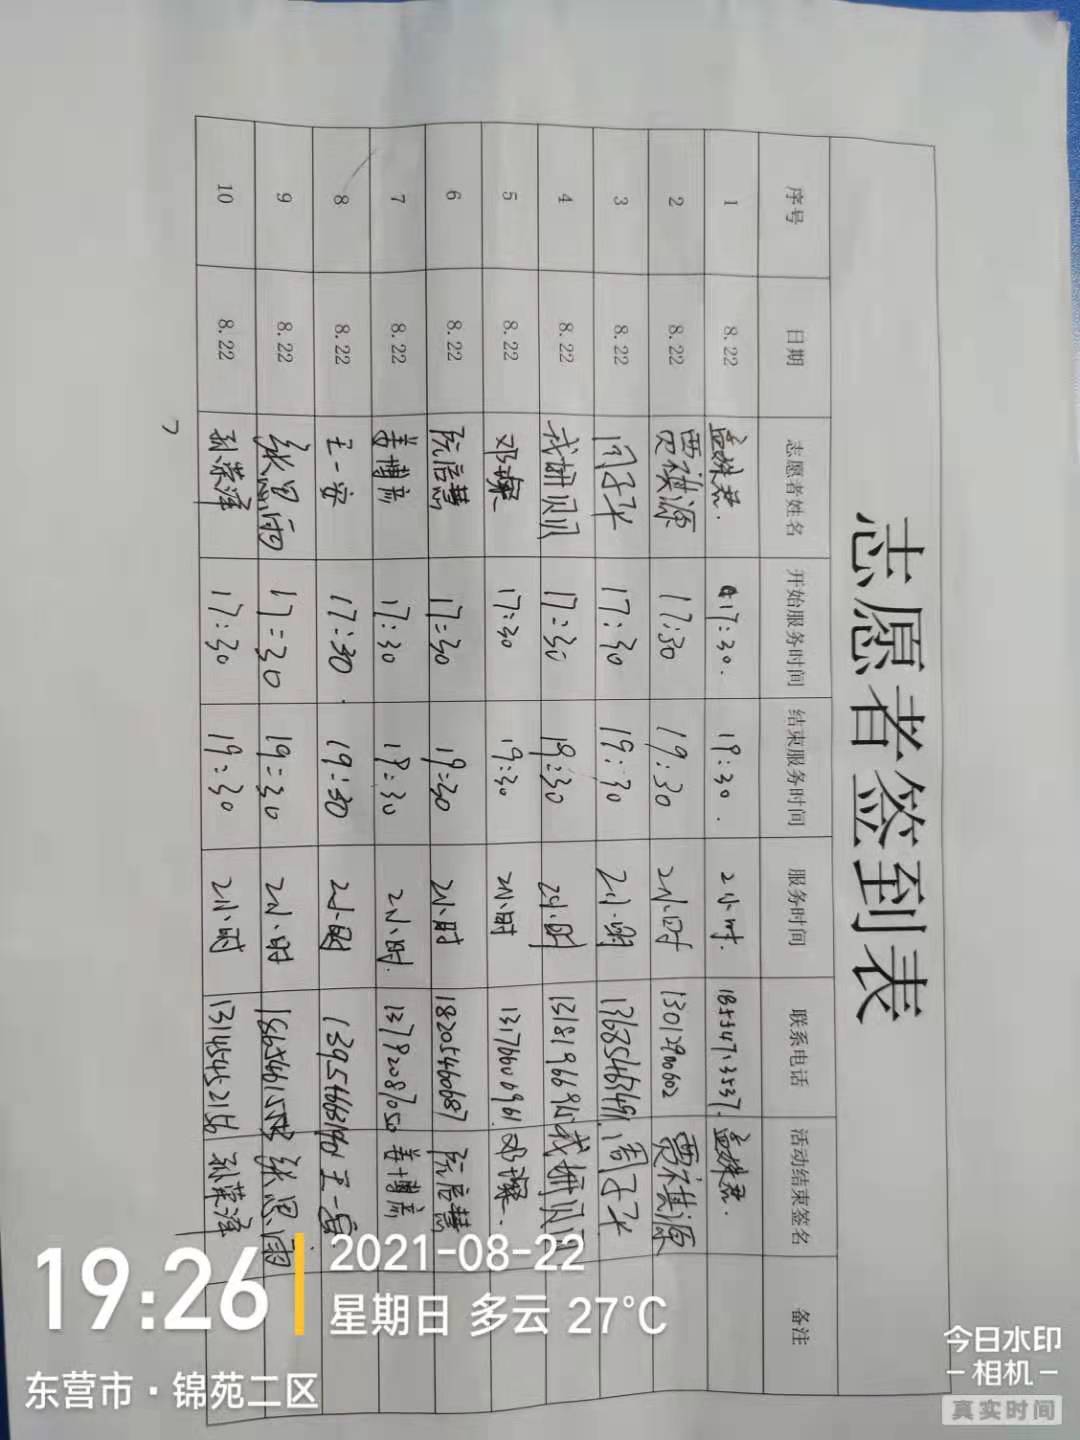 志愿者签到表
序号 日期 志愿者姓名 开始服务时间 结束服务时间 服务时间 联系电话 活动结束签名 备注
1 8.22 17:30. 19:30. 2小时.
2 8.22 贾祺源 17:30 19:30 2小时 13012900602 贾祺源
3 8.22 17:30 19:30 2小时 13685463491 周子飞
4 8.22 17:30 19:30 2小时
5 8.22 邓璨 17:30 19:30 2小时 13176606961. 邓璨.
6 8.22 阮启慧 17:30 19:30 2小时 18205460687 阮启慧
7 8.22 姜博彦 17:30 19:30 2小时. 13792087050 姜博彦
8 8.22 王一安 17:30. 19:30 2小时 王一安
9 8.22 张恩雨 17:30 19:30 2小时 张恩雨
10 8.22 孙荣泽 17:30 19:30 2小时 孙荣泽
19:26
2021-08-22
星期日 多云 27°C
东营市·锦苑二区
今日水印
-相机-
真实时间